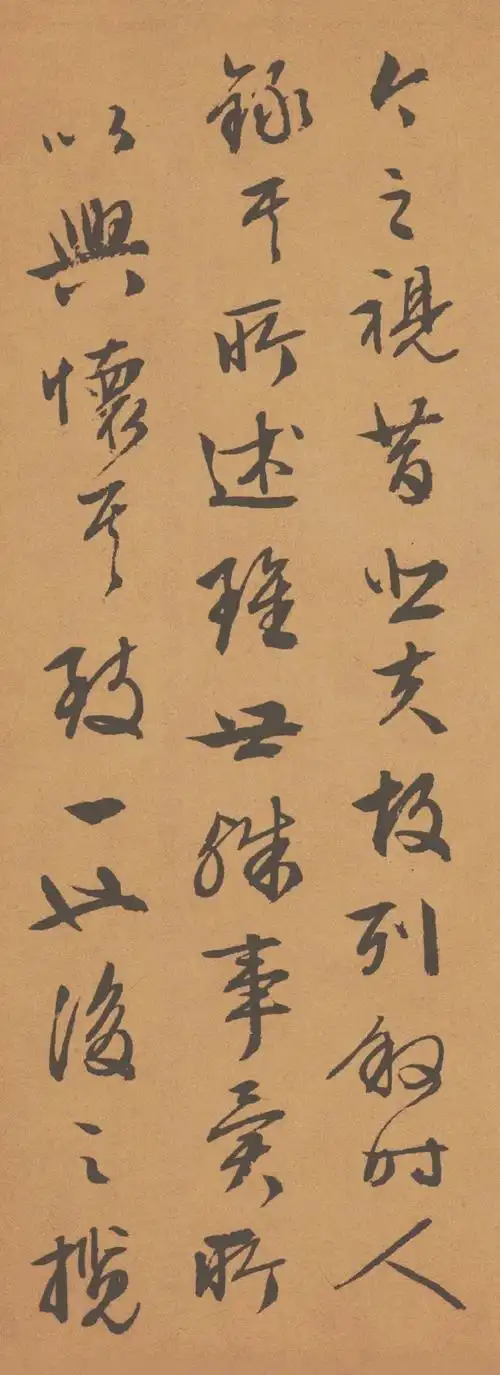 今之視昔悲夫故列敘時人
錄其所述雖世殊事異所
以興懷其致一也後之攬